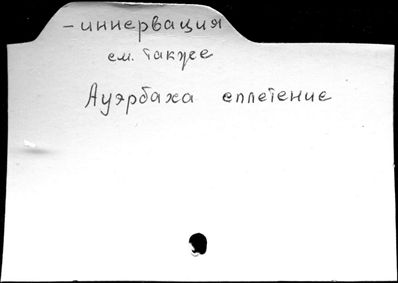 - иннервация
см. также
Ауэрбаха сплетение